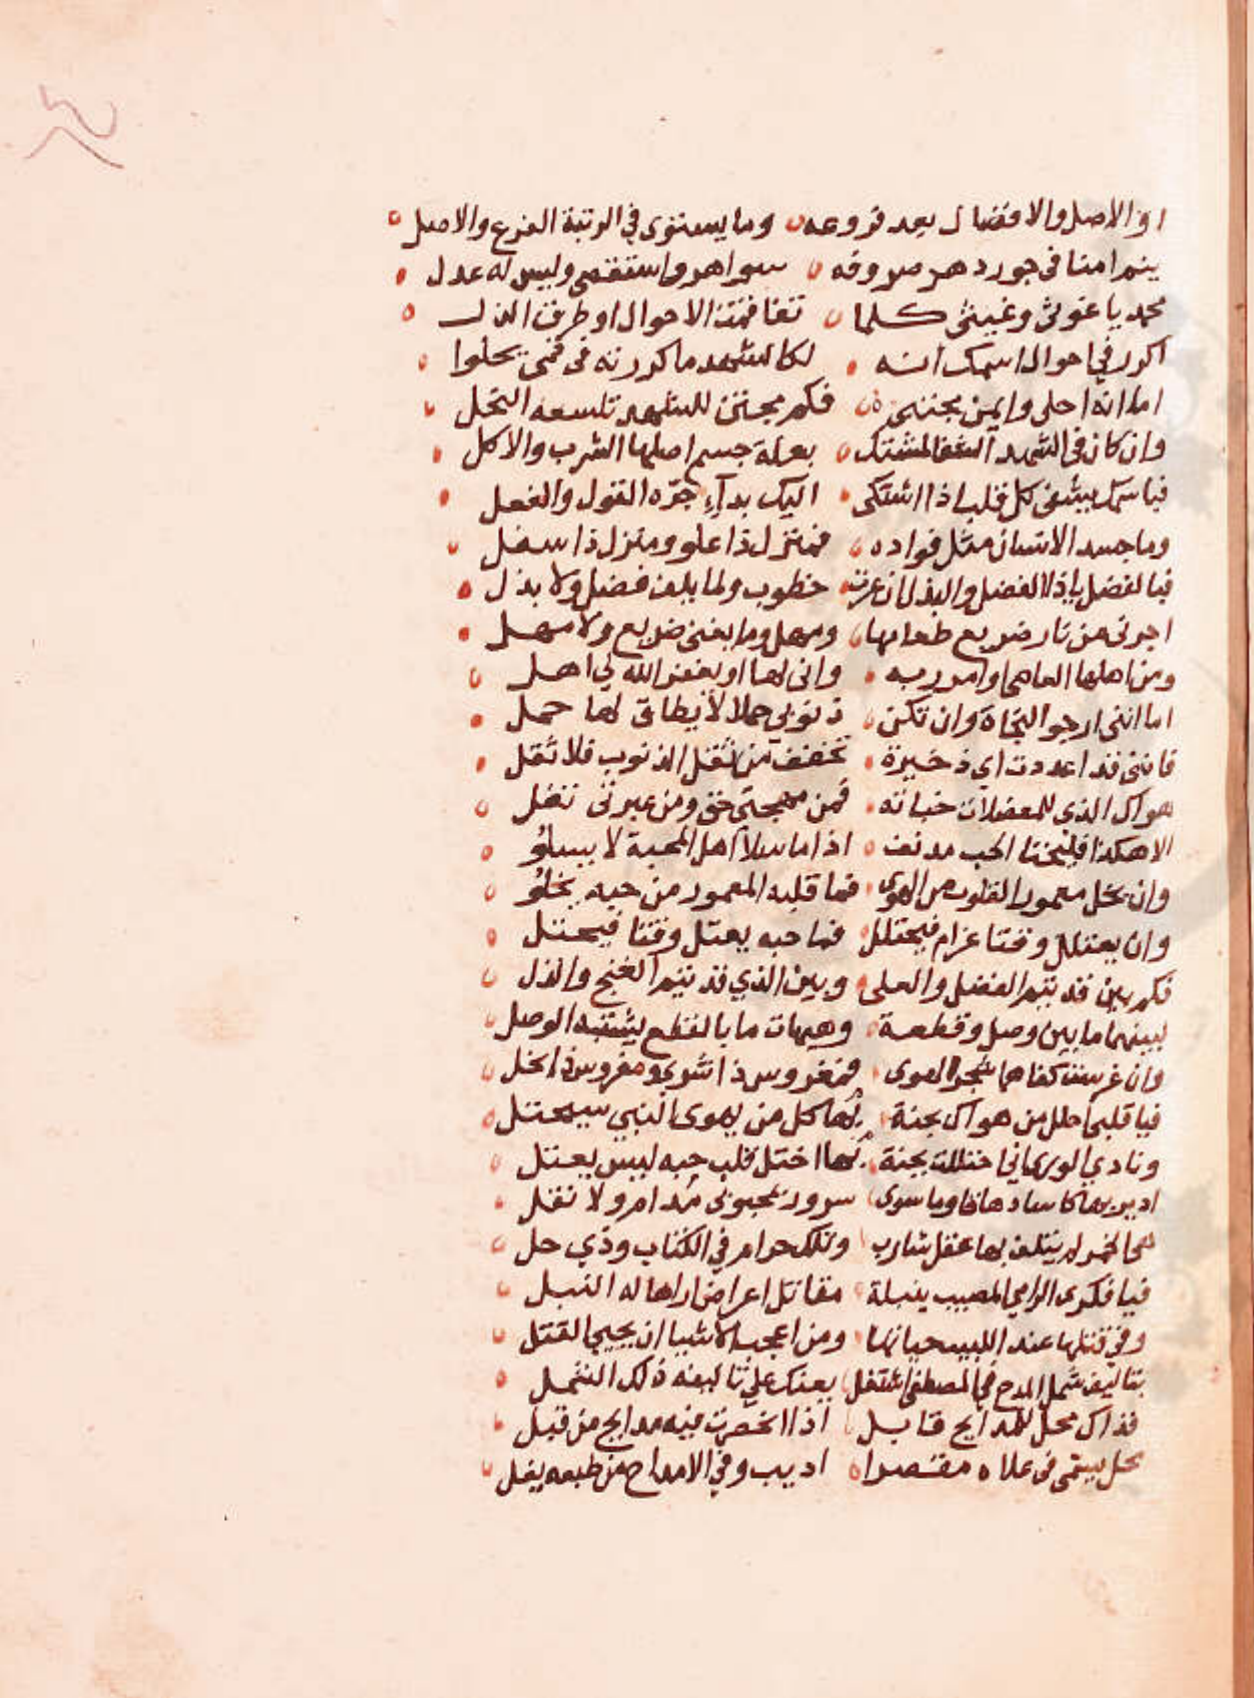 او الاصل والافضال يعد فروعه وما يستوي في الرتبة الفرع والاصل
جور دهر صروفه سواهر وليس له عدل
محمد يا غوثي وغيثي كلما تفاقمت الاحوال او طرق الذل
اكرر في احوال اسمك انه لكالشهد ما كررته في فمي يحلوا
اما انه احلى وايمن مجتنى فكم مجتن للشهد تلسعه النحل
وان كان في الشهد الشفا لمشتك بعلة جسم اصلها الشرب والاكل
فباسمك يشفى كل قلب اذا اشتكى اليك بداء جره القول والفعل
وما جسد الانسان مثل فواده فمنزل ذا علو ومنزل ذا سفل
فبالفضل يا ذا الفضل والبذل ان عرت خطوب ولما يلف فضل ولا بذل
اجرني من نار ضريع طعامها ومهل وما يغني ضريع ولا مهل
ومن اهلها العاصي اوامر ربه واني لها او يغفر الله لي اهل
اما انني ارجو النجاة وان تكن ذنوبي حملا لا يطاق لها حمل
فانني قد اعددت اي ذخيرة تخفف من ثقل الذنوب فلا ثقل
هواك الذي للمعضلات خباته فمن مهجتي ومن عبرتي
الا هكذا الحب مدنف اذا ما سلا اهل المحبة لا يسلو
وان يخل معمور القلوب من الهوى فما قلبه المعمور من حبه يخلو
وان يعتلل وقتا غرام فيحتلل فما حبه يعتل وقتا فيحتل
فكم بين قد تيم الفضل والعلى وبين الذي قد تيم الغنج والدل
لبينهما ما بين وصل وقطعة وهيهات ما بالقطع يشتبه الوصل
وان غرست كفاهما شجر الهوى فمغروس ذا شوك ومغروس ذا نخل
فيا قلب احلل من هواك بجنة بها كل من يهوى النبي سيحتل
ونادي الورى اني اختللت بجنة بها اختل قلب حبه ليس يعتل
ادير بها كاسا دهاقا وما سوى سرور بمحبوبي مدام ولا نقل
هي الخمر لم يتلف بها عقل شارب وتلك حرام في الكتاب وذي حل
فيا فكري الرامي المصيب بنبلة مقاتل اعراض اراها له النبل
وفي قتلها عند اللبيب حياتها ومن اعجب الاشيا ان يحيي القتل
بتاليف شمل المدح في المصطفى اشتغل يعنك على تاليفه ذلك الشمل
فذاك محل للمدايح قابل اذا انحصرت فيه مدايح من قبل
يحل في علاه مقصرا اديب وفي الامداح من طبعه يغل